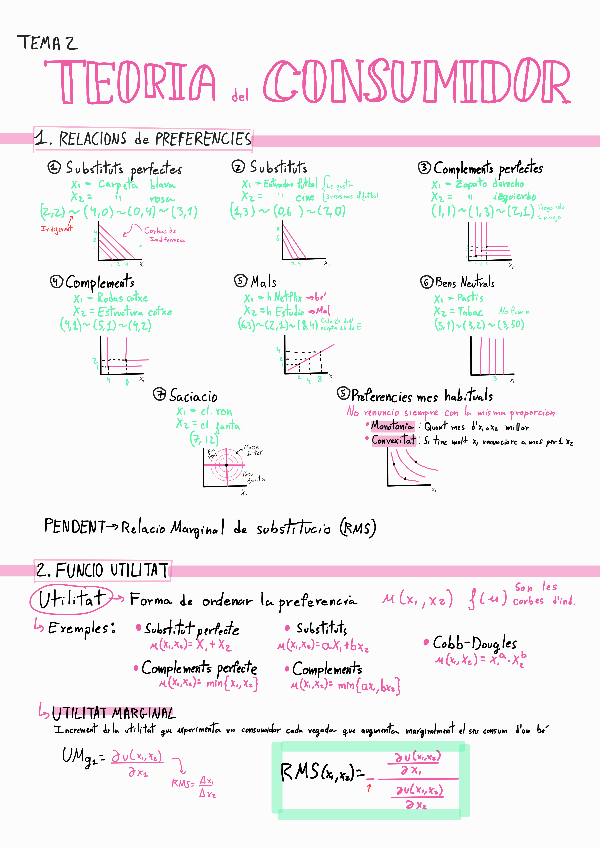 TEMA 2
TEORIA del CONSUMIDOR
1. RELACIONS de PREFERENCIES
① Substituts perfectes
X₁ = Carpeta blava
X₂ = " rosa
(2,2) ~ (4,0) ~ (0,4) ~ (3,1)
Indiferent
Corbes de Indiferencia
② Substituts
X₁ = Entradas futbol
X₂ = " cine
(1,3) ~ (0,6) ~ (2,0)
③ Complements perfectes
X₁ = Zapato derecho
X₂ = " izquierdo
(1,1) ~ (1,3) ~ (2,1)
④ Complements
X₁ = Rodas cotxe
X₂ = Estructura cotxe
(4,1) ~ (5,1) ~ (4,2)
⑤ Mals
X₁ = h Netflix → be
X₂ = h Estudio → Mal
(6,3) ~ (2,1) ~ (8,4)
⑥ Bens Neutrals
X₁ = Pastis
X₂ = Tabac
(3,1) ~ (3,2) ~ (3,50)
⑦ Saciacio
X₁ = el ron
X₂ = el fanta
(7,12)
⑤ Preferencies mes habituals
No renuncio siempre con la misma proporcion
• Monotonia: Quant mes d'x₁ o x₂ millor
• Convexitat: Si tinc molt x₁ renunciare a mes per 1 x₂
PENDENT → Relacio Marginal de substitucio (RMS)
2. FUNCIO UTILITAT
Utilitat → Forma de ordenar la preferencia u(x₁,x₂) f(u) Son les corbes d'ind.
↳ Exemples:
• Substitut perfecte
u(x₁,x₂) = x₁ + x₂
• Substituts
u(x₁,x₂) = ax₁ + bx₂
• Cobb-Dougles
u(x₁,x₂) = x₁ᵃ · x₂ᵇ
• Complements perfecte
u(x₁,x₂) = min{x₁,x₂}
• Complements
u(x₁,x₂) = min{ax₁,bx₂}
↳ UTILITAT MARGINAL
Increment de la utilitat que esperimenta un consumidor cada vegada que augmenta marginalment el seu consum d'un be
UMg₁ = ∂u(x₁,x₂) / ∂x₁
RMS = Δx₁ / Δx₂
RMS(x₁,x₂) = − (∂u(x₁,x₂) / ∂x₁) / (∂u(x₁,x₂) / ∂x₂)